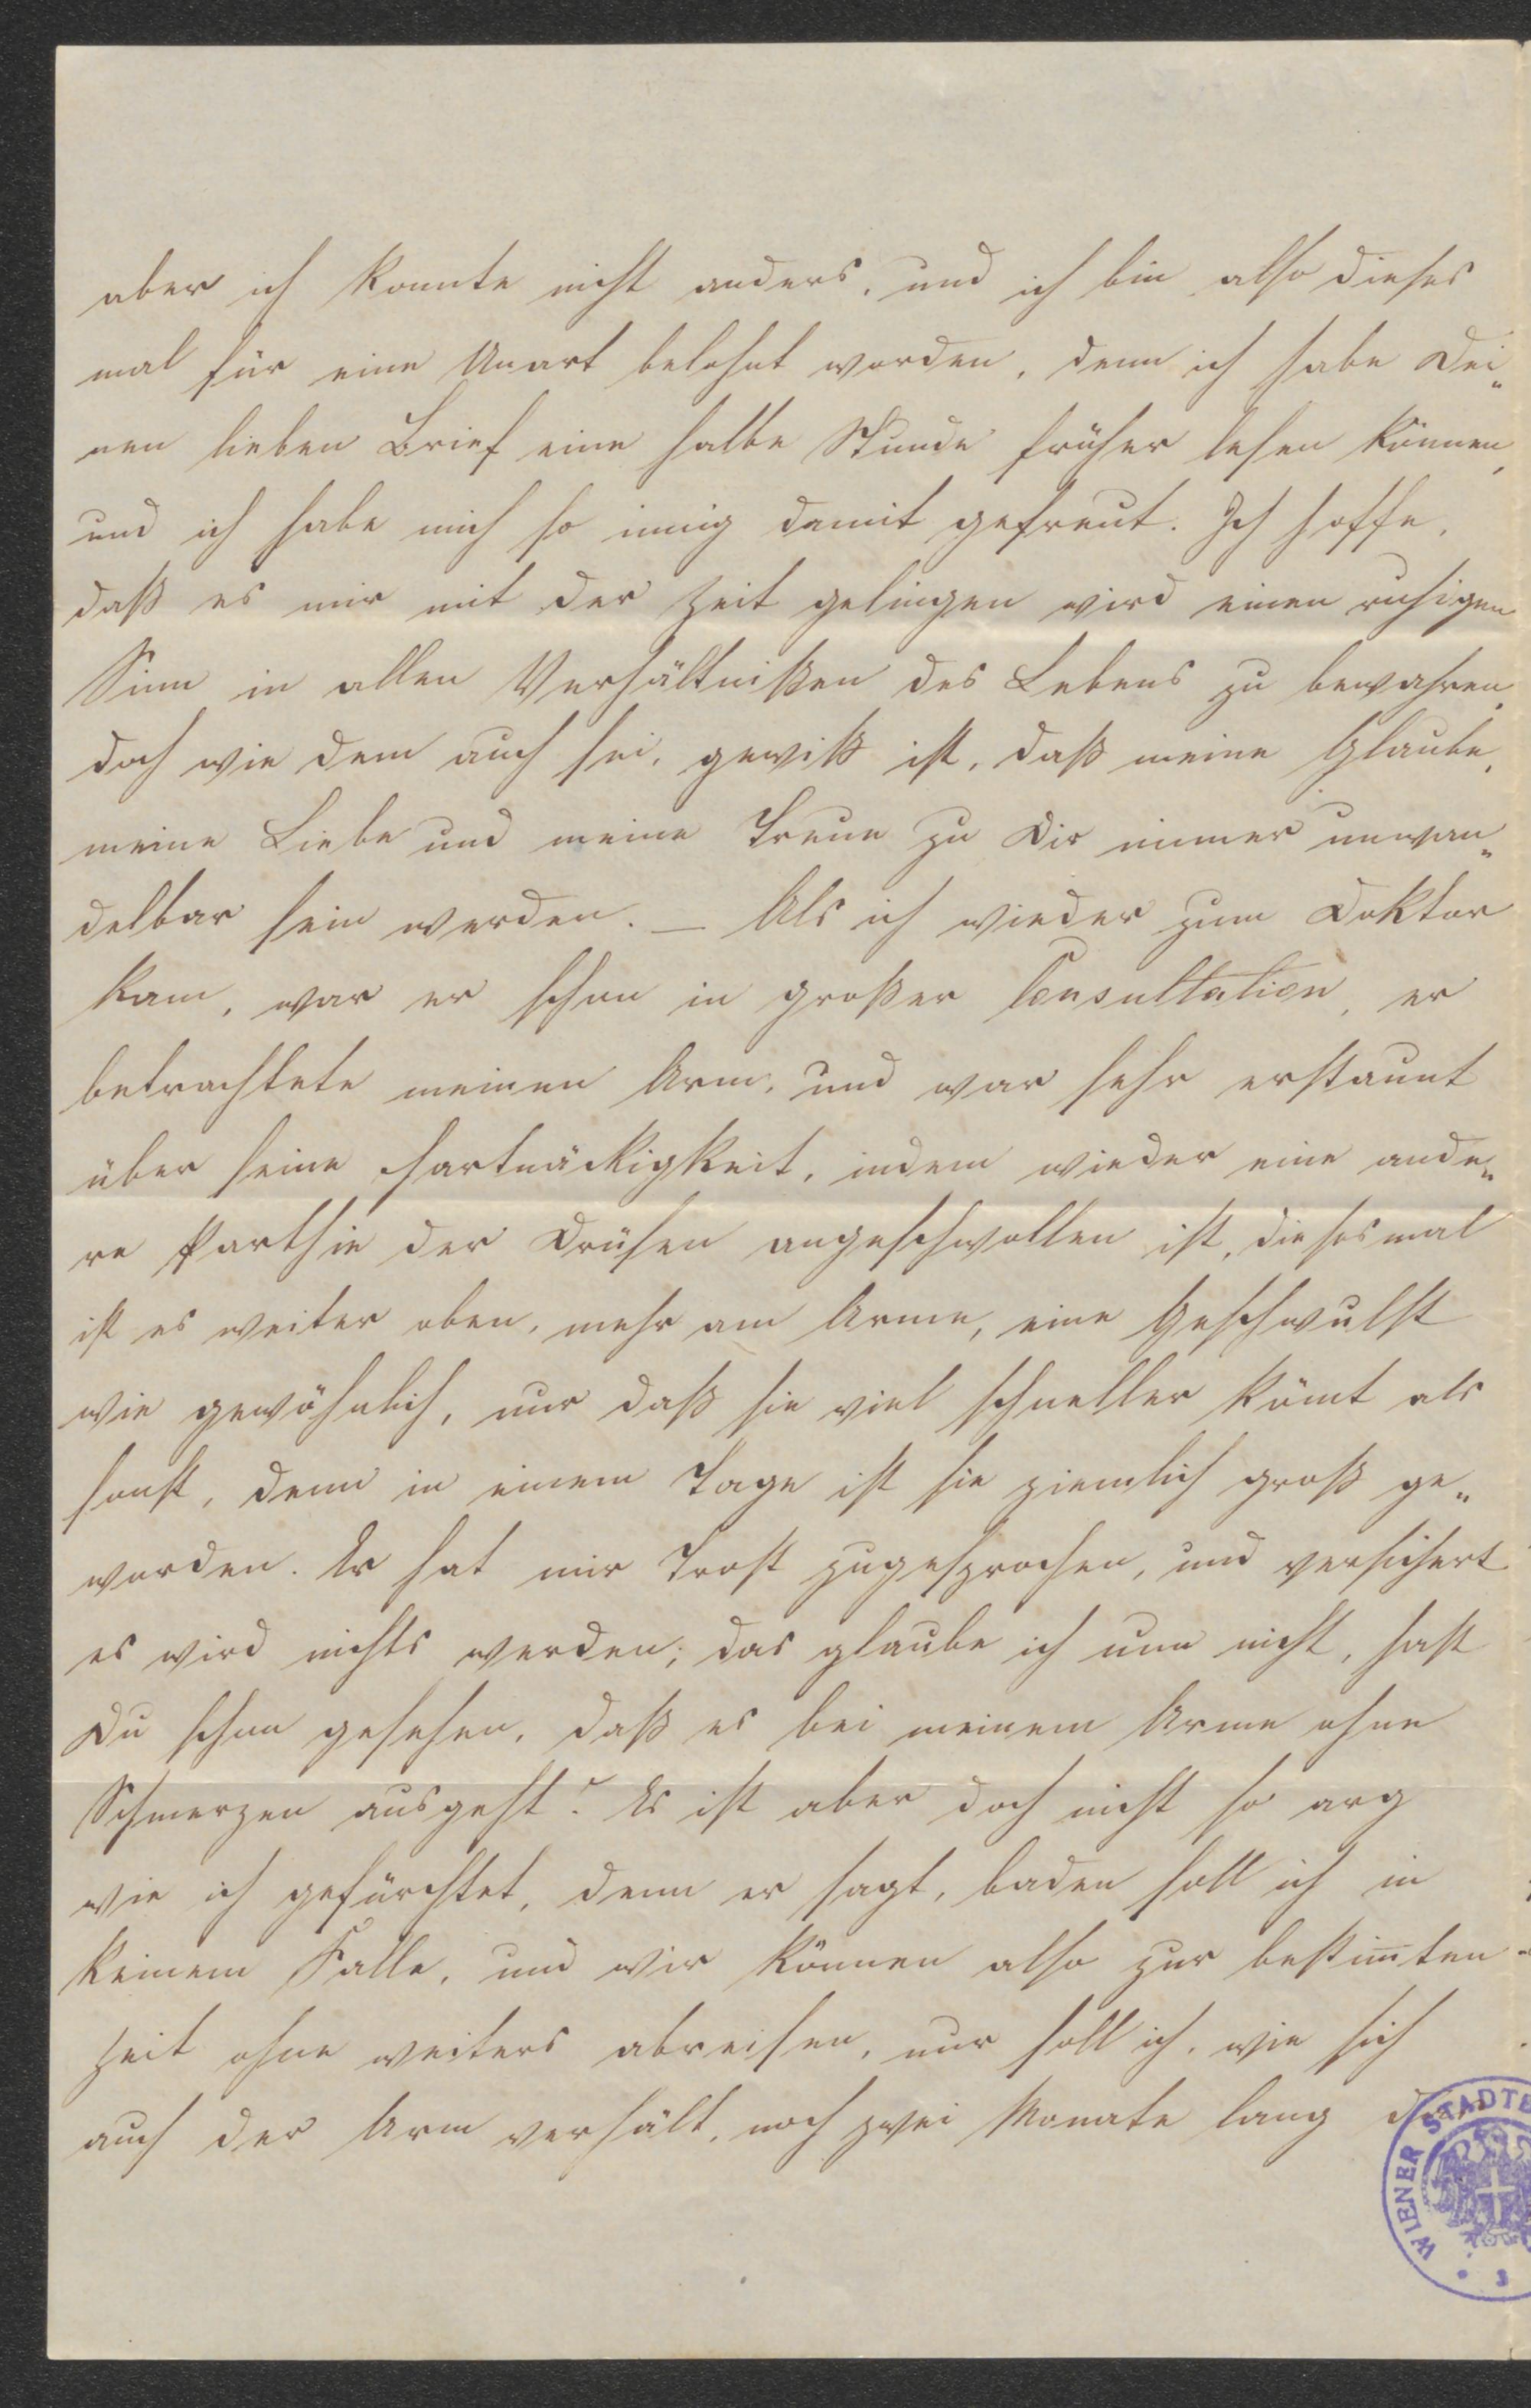 aber ich konnte nicht anders, und ich bin also dieses
mal für eine Unart belohnt worden, denn ich habe Dei„
nen lieben Brief eine halbe Stunde früher lesen können,
und ich habe mich so innig damit gefreut. Ich hoffe,
daß es mir mit der Zeit gelingen wird einen ruhigen
Sinn in allen Verhältnißen des Lebens zu bewahren,
doch wie dem auch sei, gewiß ist, daß meine Glaube,
meine Liebe und meine Treue zu Dir immer unwan„
delbar sein werden. — Als ich wieder zum Doktor
kam, war er schon in großer Consultation, er
betrachtete meinen Arm, und war sehr erstaunt
über seine Hartnäckigkeit, indem wieder eine ande„
re Parthie der Drüsen angeschwollen ist, diesesmal
ist es weiter oben, mehr am Arme, eine Geschwulst
wie gewöhnlich, nur daß sie viel schneller kömt als
sonst, denn in einem Tage ist sie ziemlich groß ge„
worden. Er hat mir Trost zugesprochen, und versichert
es wird nichts werden; das glaube ich nun nicht, hast
Du schon gesehen, daß es bei meinem Arme ohne
Schmerzen ausgeht? Es ist aber doch nicht so arg
wie ich gefürchtet, denn er sagt, baden soll ich in
keinem Falle, und wir können also zur bestim̅ten
Zeit ohne weiters abreisen, nur soll ich, wie sich
auch der Arm verhält, noch zwei Monate lang
WIENER STADTB